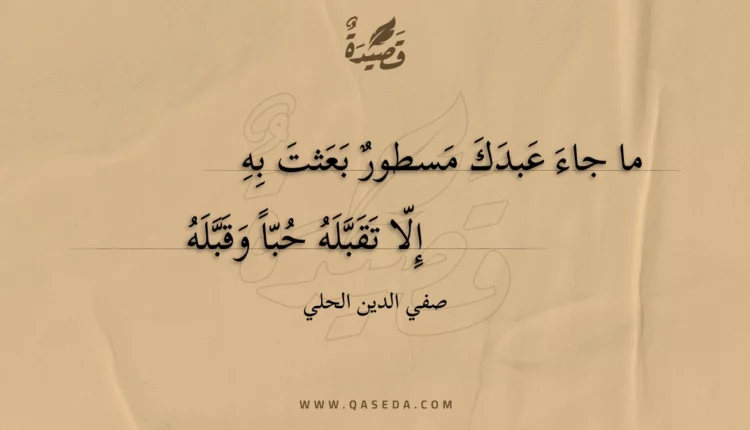 قَصِيْدَةٌ
ما جاءَ عَبدَكَ مَسطورٌ بَعَثتَ بِهِ
إِلّا تَقَبَّلَهُ حُبّاً وَقَبَّلَهُ
صفي الدين الحلي
WWW.QASEDA.COM